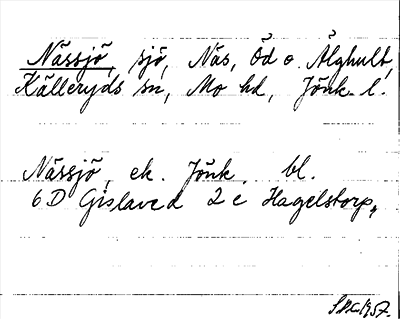 Nässjö, sjö, Näs, Öd o. Älghult,
Källeryds sn, Mo hd, Jönk. l.
Nässjö, ek. Jönk. bl.
6D Gislaved 2 e Hagelstorp,,
1957.